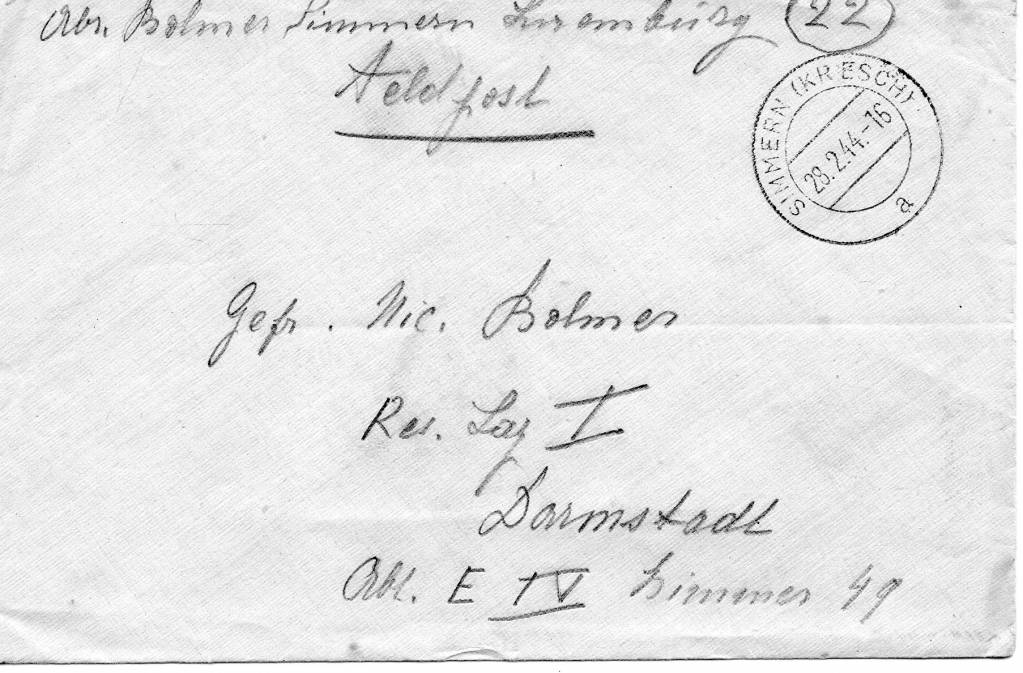 Abs. Bolmer Simmern Luxemburg 22
Feldpost
SIMMERN (KR ESCH)
28.2.44.-16
a
Gefr. Nic. Bolmer
Res. Laz I
Darmstadt
Abt. E IV Zimmer 49